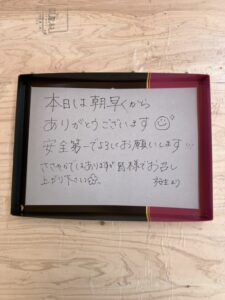 本日は朝早くから
ありがとうございます
安全第一でよろしくお願いします!!!
ささやかではありますが皆様でお召し
上がり下さい
より